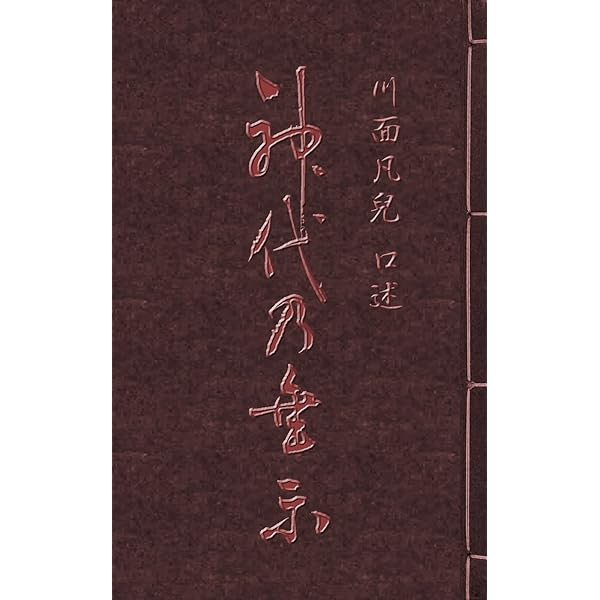 川面凡兒 口述
神代乃垂示